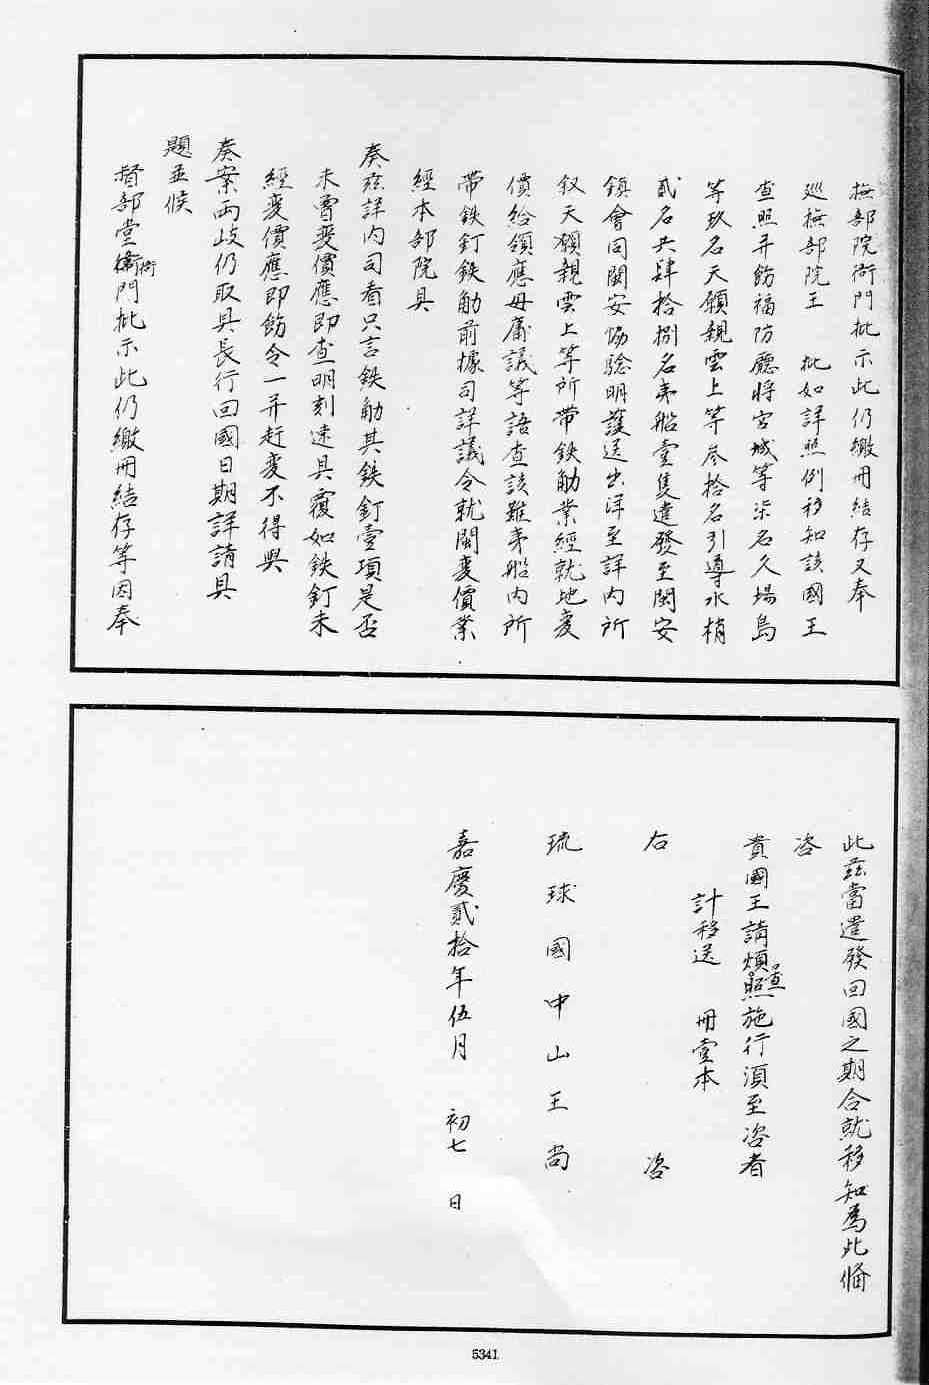 撫部院衙門批示此仍繳冊結存又奉
巡撫部院王　批如詳照例移知該國王
查照并飭福防廳將宮城等柒名久場島
等玖名天願親雲上等叁拾名引導水梢
貳名共肆拾捌名弟船壹隻遣發至閩安
鎮會同閩安協驗明護送出洋至詳內所
叙天願親雲上等所帶鉄觔業經就地变
價給領應毋庸議等語查該難弟船內所
帶鉄釘鉄觔前據司詳議令就閩变價業
經本部院具
奏玆詳內司看只言鉄觔其鉄釘壹項是否
未曾变價應即查明刻速具覆如鉄釘未
經变價應即飭令一并赶变不得與
奏案両歧仍取具長行回國日期詳請具
題並候
督部堂衙門批示此仍繳冊結存等因奉
此玆當遣發回國之期合就移知為此俻
咨
貴國王請煩查照施行湏至咨者
計移送　冊壹本
右　咨
琉球國中山王尚
嘉慶貳拾年伍月　初七　日
5341